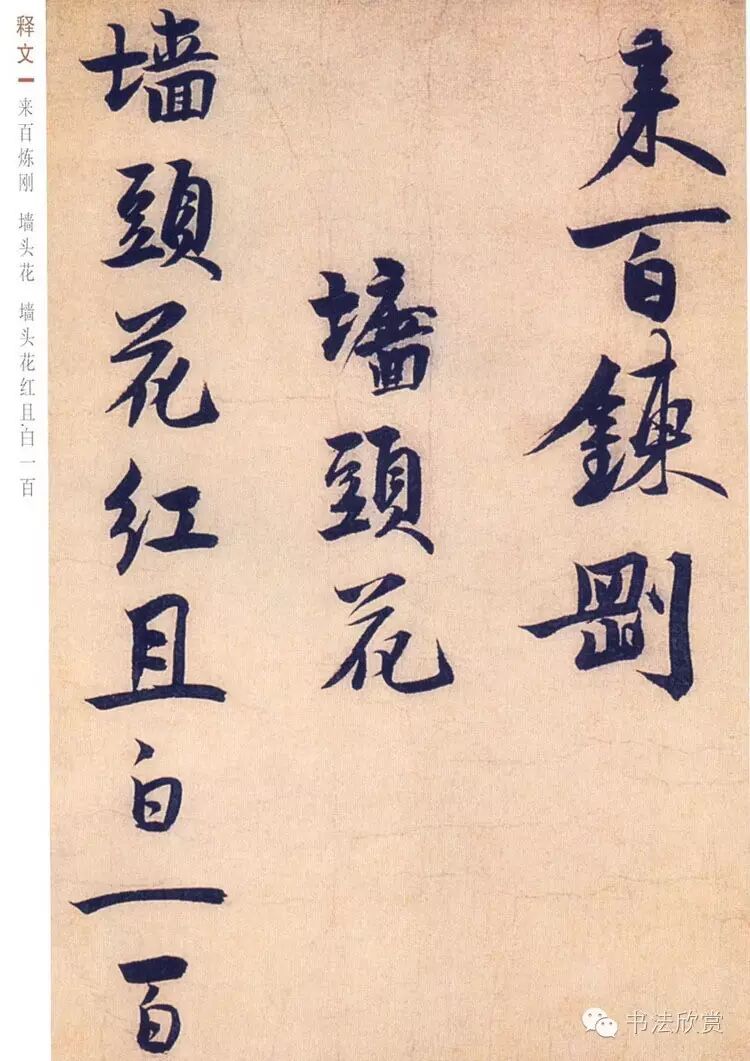 来百鍊剛
墻頭花
墙頭花红且白一百
释文
来百炼刚 墙头花 墙头花红且白一百
书法欣赏